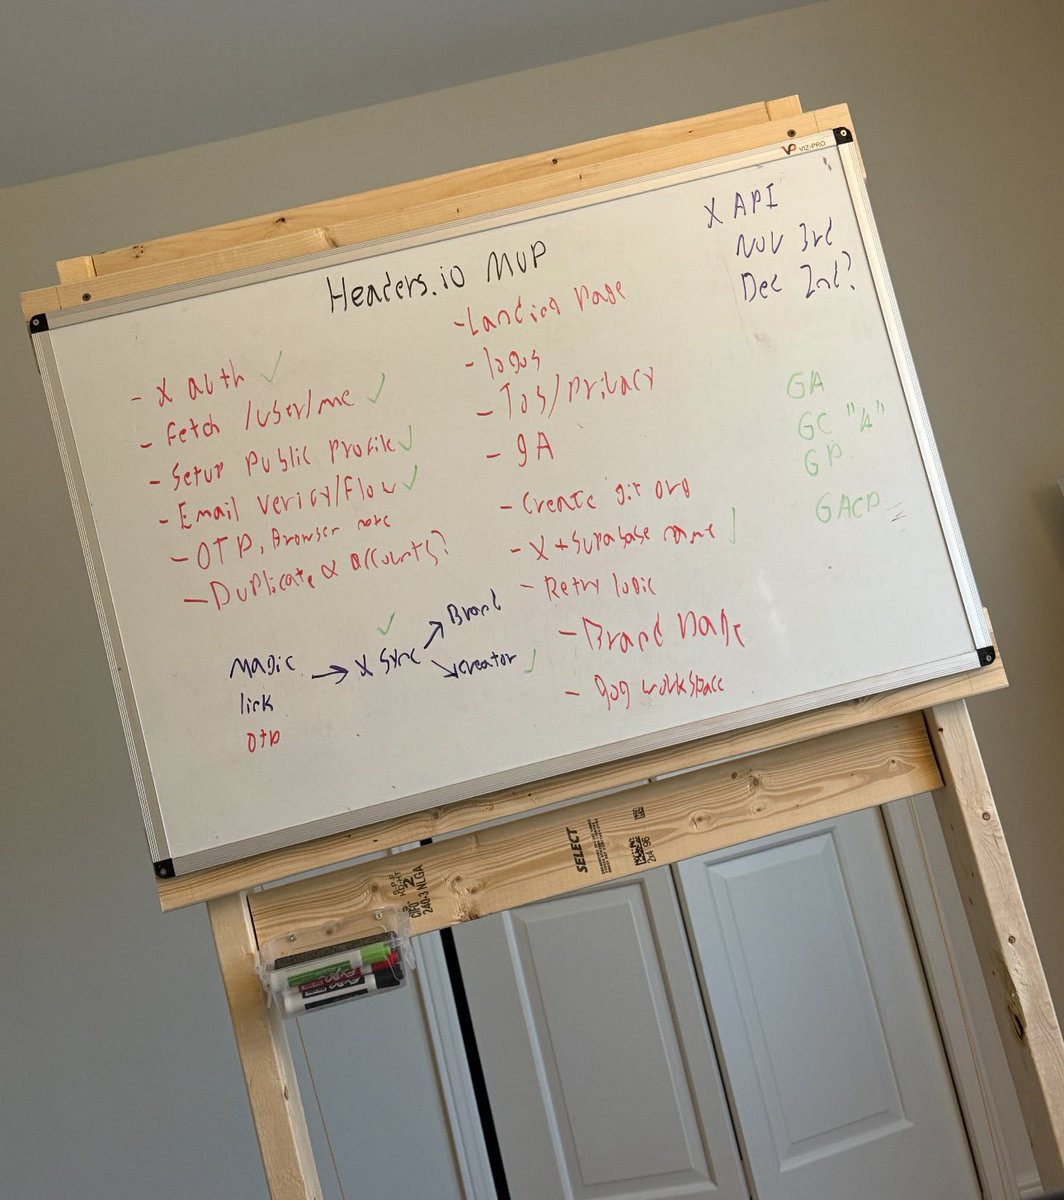 VIZ-PRO
X API
Nov 3rd
Dec 2nd?
Headers.io MVP
- X auth ✓
- Fetch /user/me ✓
- Setup Public Profile ✓
- Email verify/flow ✓
- OTP, Browser note
- Duplicate X accounts?
- Landing Page
- logos
- ToS/Privacy
- gA
- Create git org
- X + Supabase name ✓
- Retry logic
- Brand Page
- gog workspace
GA
GC "4"
GP
GACP
Magic
link
OTP
→ X Sync ✓
Brand
creator ✓
SELECT
2x4 96
2
240-3 NLGA